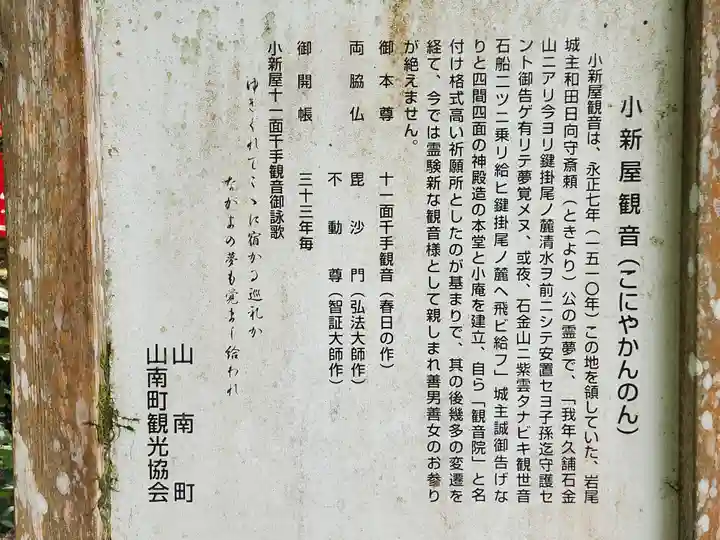 小新屋観音(こにやかんのん)
小新屋観音は、永正七年(一五一〇年)この地を領していた、岩尾
城主和田日向守斎頼(ときより)公の霊夢で、「我年久舗石金
山ニアリ今ヨリ鍵掛尾ノ麓清水ヲ前ニシテ安置セヨ子孫迄守護セ
ント御告ゲ有リテ夢覚メヌ、或夜、石金山ニ紫雲タナビキ観世音
石船二ツニ乗リ給ヒ鍵掛尾ノ麓ヘ飛ビ給フ」城主誠御告げな
りと四間四面の神殿造の本堂と小庵を建立、自ら「観音院」と名
付け格式高い祈願所としたのが基まりで、其の後幾多の変遷を
経て、今では霊験新な観音様として親しまれ善男善女のお参り
が絶えません。
御本尊 十一面千手観音(春日の作)
両脇仏 毘沙門(弘法大師作)
不動尊(智証大師作)
御開帳 三十三年毎
小新屋十一面千手観音御詠歌
ゆきくれてこゝに宿かる巡礼か
なかよの夢も覚まし給われ
山南町
山南町観光協会